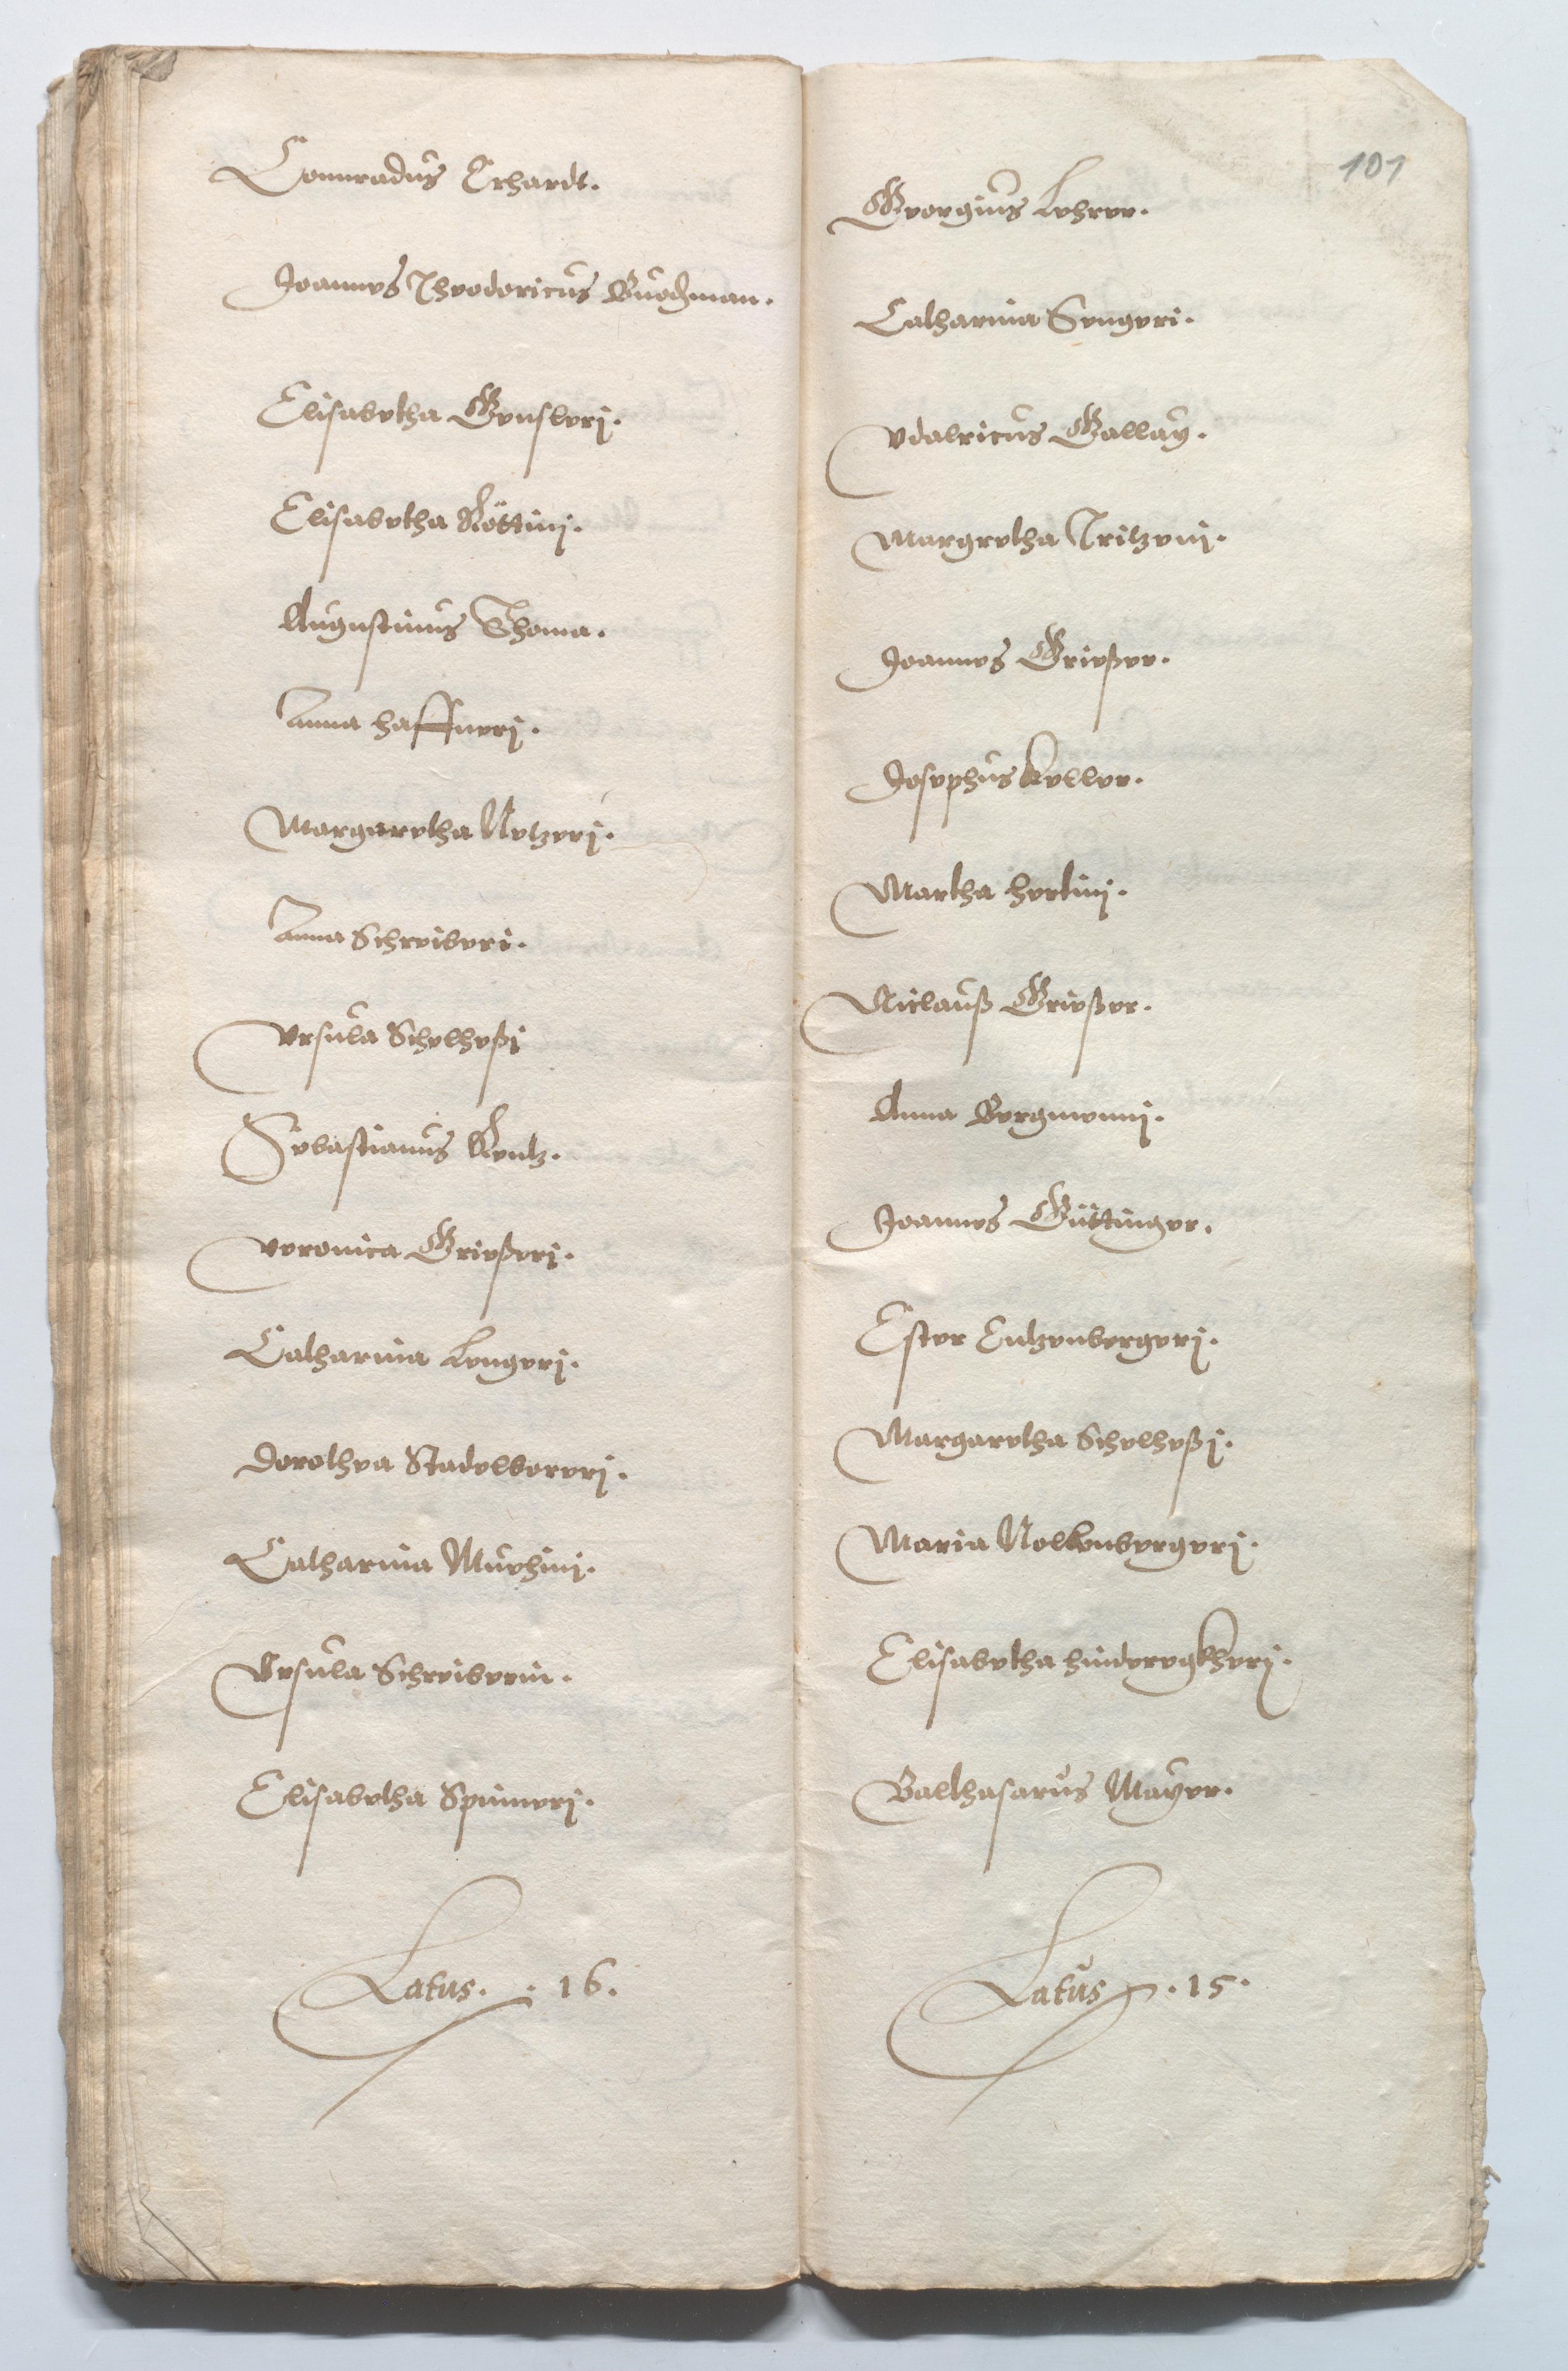 Connradus Erhardt.
Joannes Theodoricus Buochman.
Elisabetha Genslerj.
Elisabetha Röttinj.
Augustinus Thoma.
Anna Haffnerj.
Margaretha Netzerj.
Anna Schreiberi.
Vrsula Schelheßj
Sebastianus Rentz.
Veronica Grießerj.
Catharina Lengerj.
Dorothea Stadelborerj.
Catharina Muehinj.
Vrsula Schreiberin.
Elisabetha Spinnerj.
Latus. . 16.
101
Georgius Lehrer.
Catharina Sengeri.
Vdalricus Gallay.
Margretha Fritzenj.
Joannes Grießer.
Josephus Keller.
Martha Hertinj.
Niclauß Grießer.
Anna Bergmennj.
Joannes Güttinger.
Ester Entzenbergerj.
Margaretha Schelheßj.
Maria Noltenbergerj.
Elisabetha Hinderegkherj.
Balthasarus Mayer.
Latus . 15.